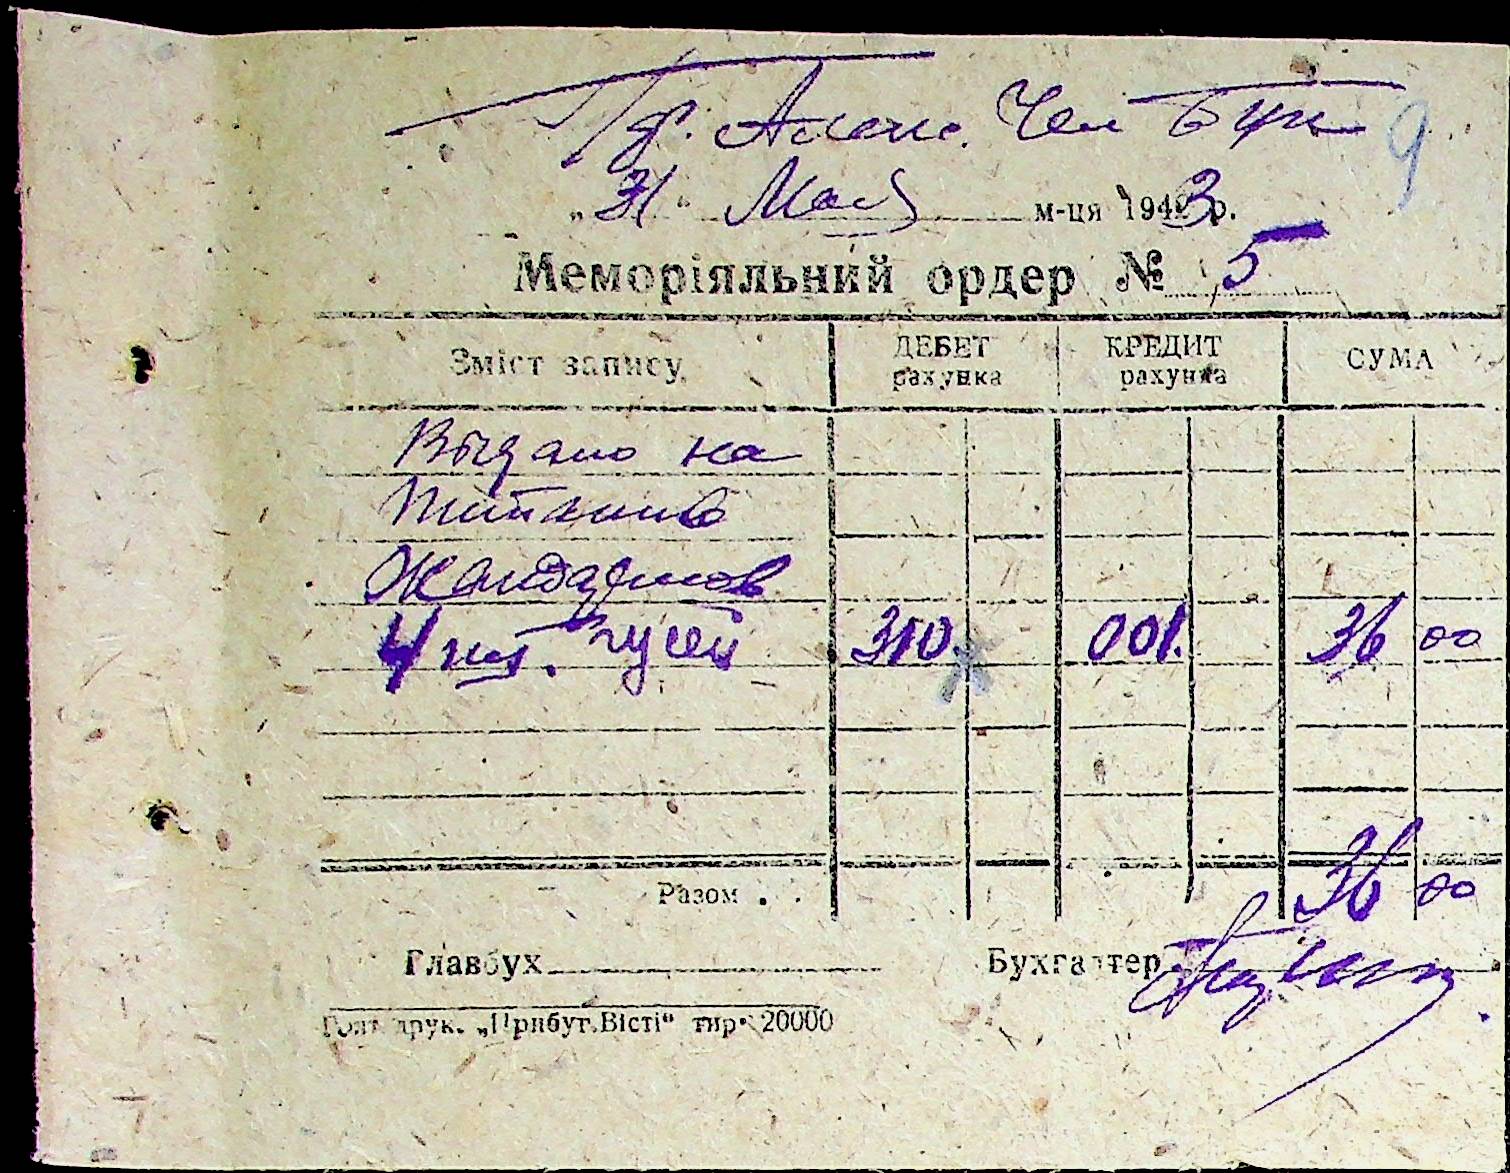 9
„31“ Мая м-ця 1943 р.
Меморіяльний ордер № 5
Зміст запису
ДЕБЕТ рахунка
КРЕДИТ рахунка
СУМА
Выдано на
питание
Жандармов
4 шт. гусей 310. 001. 36 00
Разом . 36 00
Главбух
Бухгалтер
друк. „Прибут.Вісті“ тир. 20000